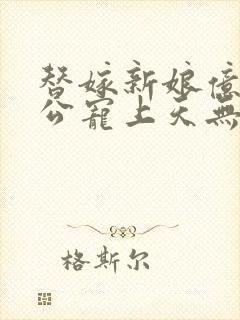 替嫁新娘億
公寵上天無
格斯尔